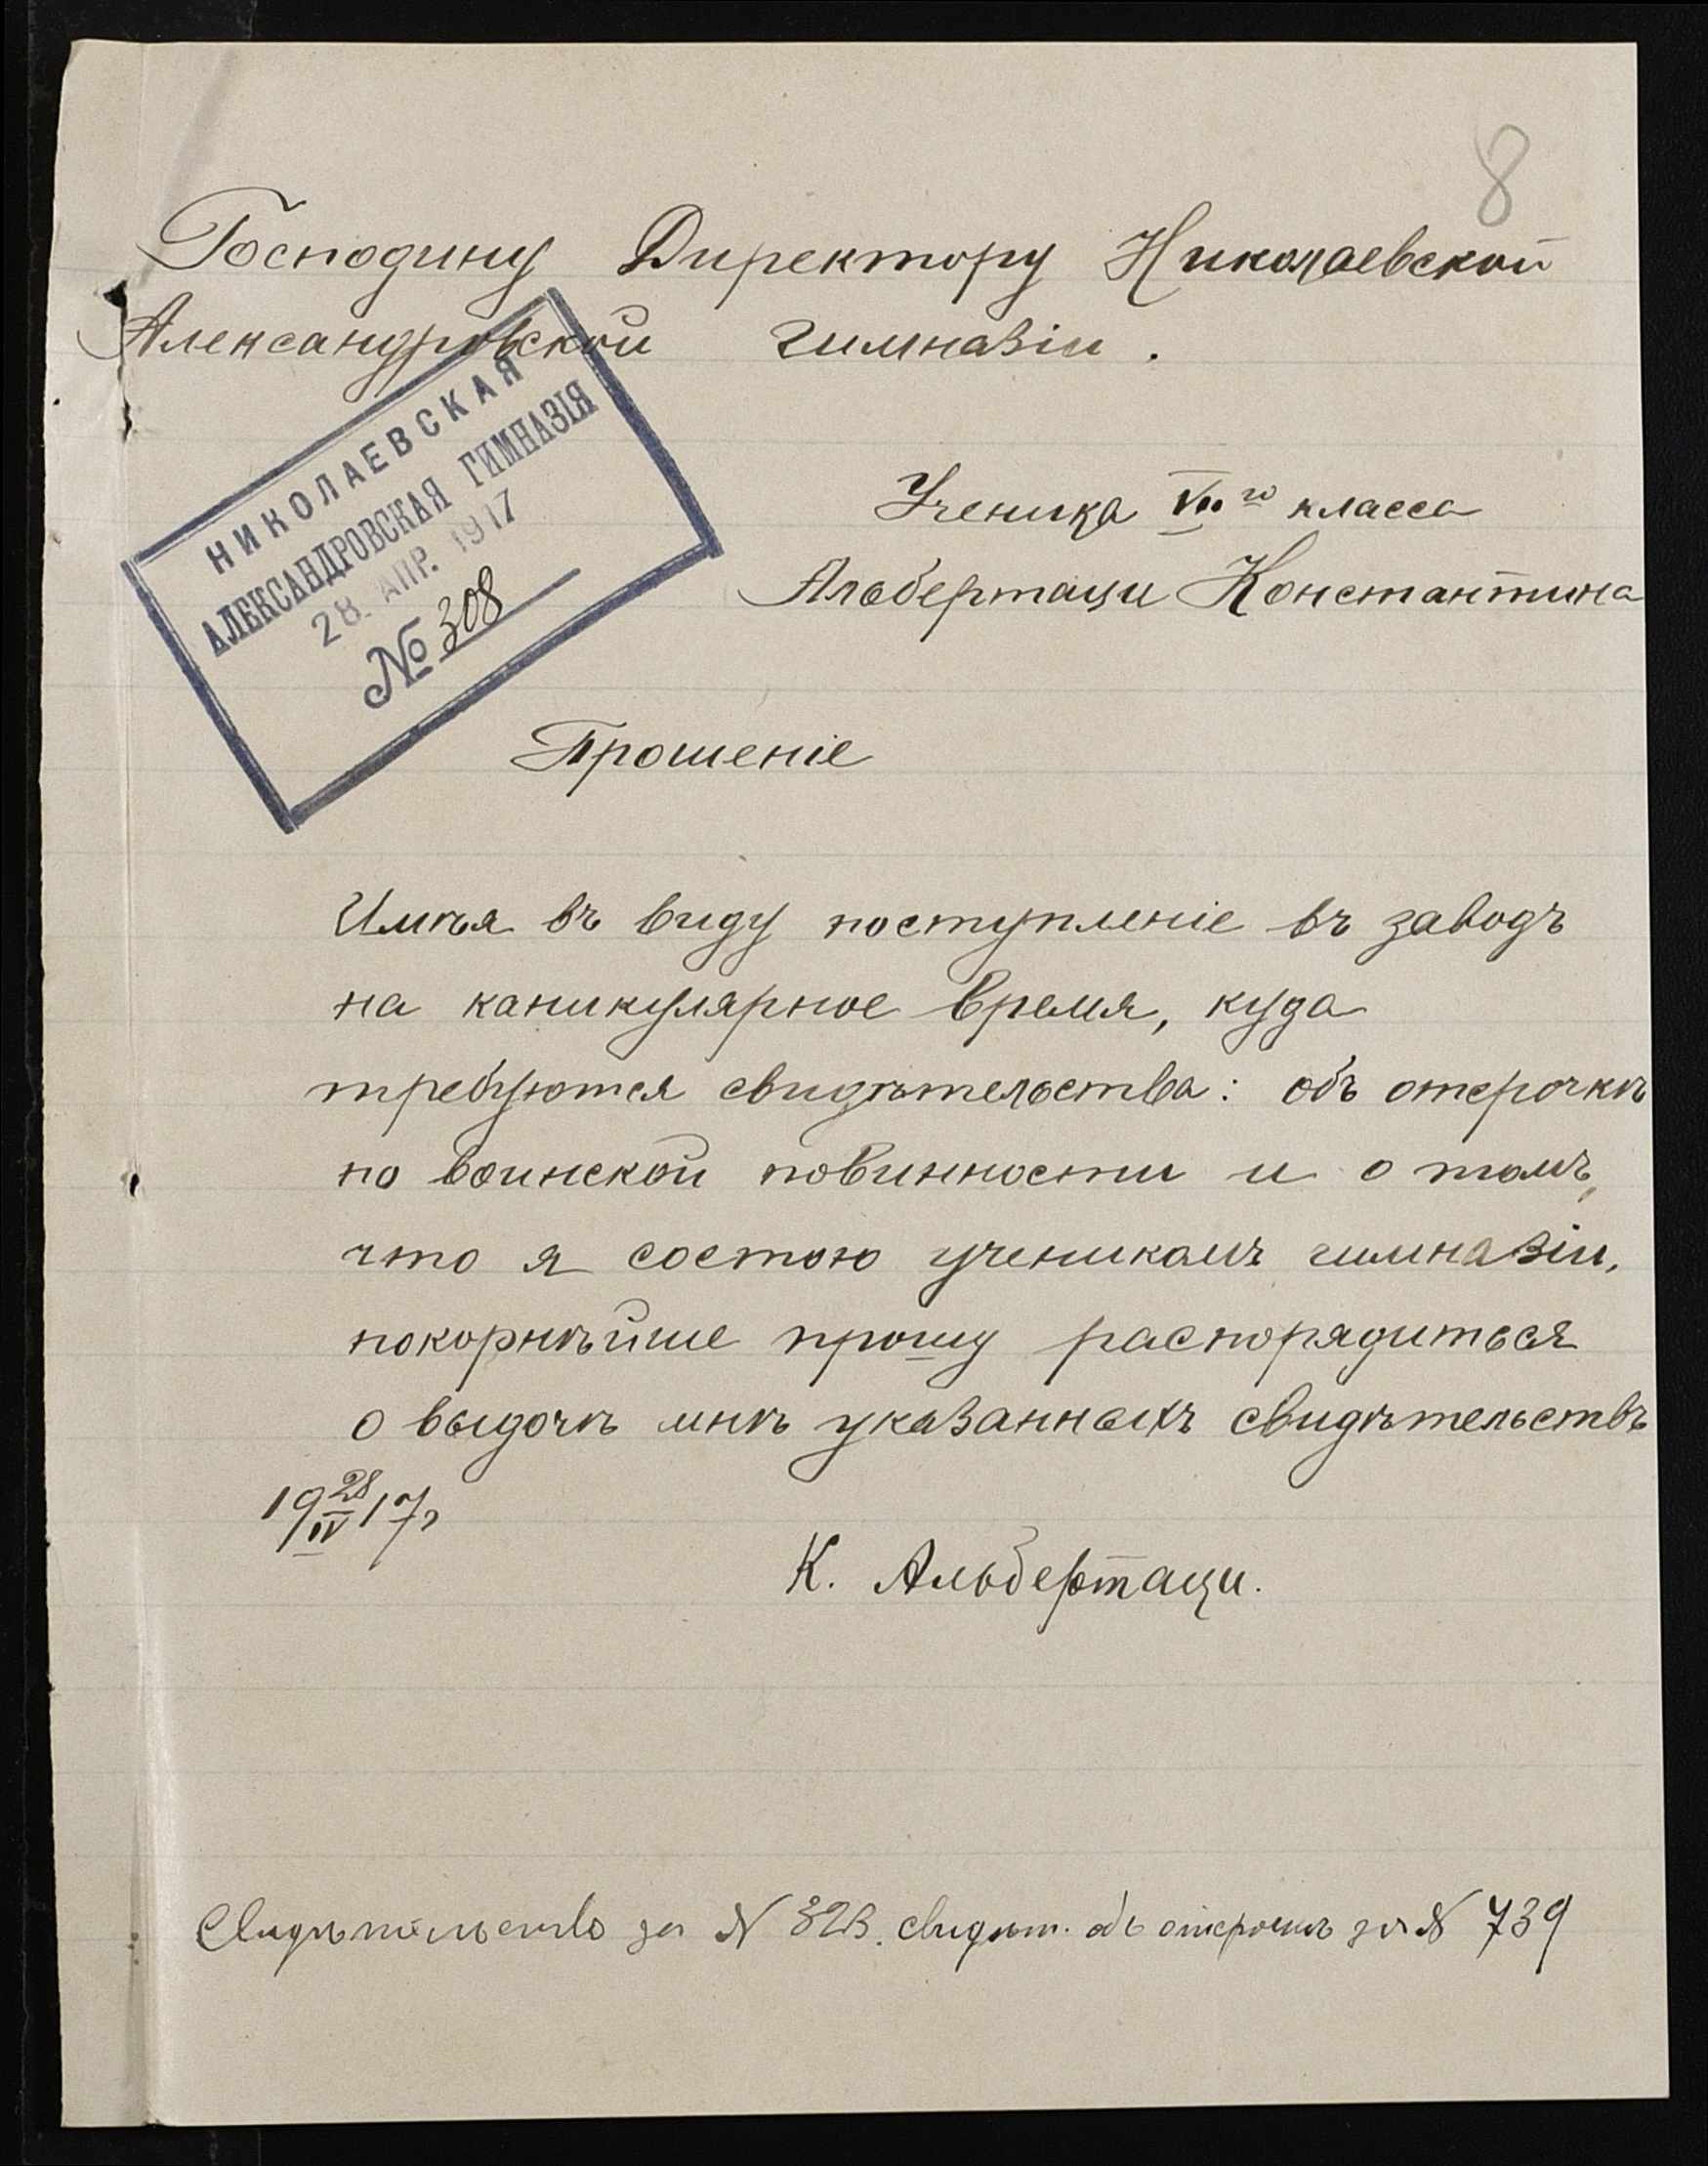 8
Господину Директору Николаевской
Александровской гимназіи.
НИКОЛАЕВСКАЯ
АЛЕКСАНДРОВСКАЯ ГИМНАЗІЯ
28. АПР. 1917
№ 308
Ученика VII го класса
Альбертаци Константина
Прошеніе
Имѣя въ виду поступленіе въ заводъ
на каникулярное время, куда
требуются свидѣтельства: объ отсрочкѣ
по воинской повинности и о томъ,
что я состою ученикомъ гимназіи,
покорнѣйше прошу распорядиться
о выдачѣ мнѣ указанныхъ свидѣтельствъ
19 28/IV 17 г
К. Альбертаци.
Свидѣтельство за N 323. свидѣт. объ отсрочкѣ за N 739